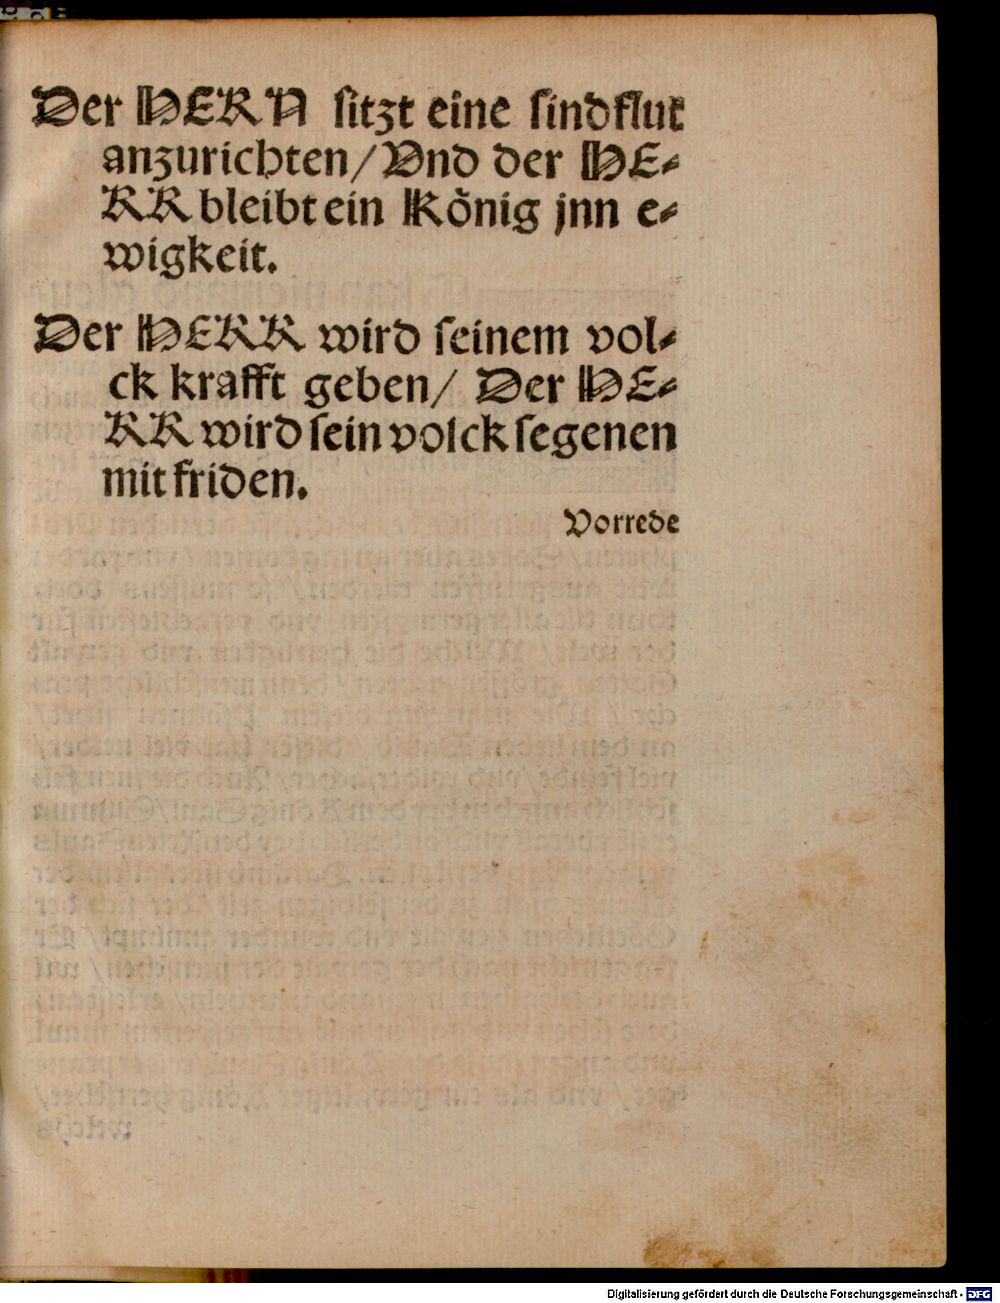 Der HERN ſitzt eine ſindflut
anzurichten/Vnd der HE⸗
RR bleibt ein König jnn e⸗
wigkeit.
Der HERR wird ſeinem vol⸗
ck krafft geben/ Der HE⸗
RR wird ſein volck ſegenen
mit friden.
Vorrede
Digitalisierung gefördert durch die Deutsche Forschungsgemeinschaft - DFG